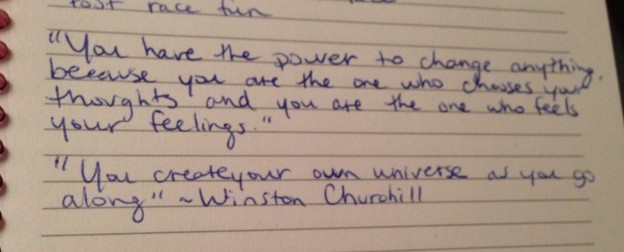 Post race fun
"You have the power to change anything,
because you are the one who chooses your
thoughts and you are the one who feels
your feelings."
"You create your own universe as you go
along" ~ Winston Churchill